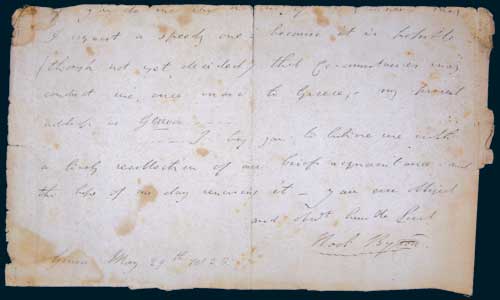 if you do me the honour of an answer may
I request a speedy one - because it is possible
(though not yet decided) that Circumstances may
conduct me once more to Greece. - my present
address is Genoa
I beg you to believe me with
a lively recollection of our brief acquaintance - and
the hope of one day renewing it - your ever obliged
and obdt. humble Servt
Noel Byron
Genoa May 29th 1823